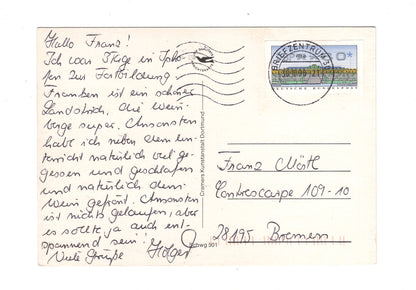 Hallo Franz!
Ich war 3 Tage in Ipho-
fen zur Fortbildung
Franken ist ein schöner
Landstrich, die Wein-
berge super. Ansonsten
habe ich neben dem Un-
terricht natürlich viel ge-
gessen und geschlafen
und natürlich dem
Wein gefrönt. Ansonsten
ist nichts gelaufen, aber
es sollte ja auch ent-
spannend sein.
Viele Grüße Holger
Cramers Kunstanstalt Dortmund
BRIEFZENTRUM
DEUTSCHE BUNDESPOST
Franz
Contrescarpe 109-10
28195 Bremen